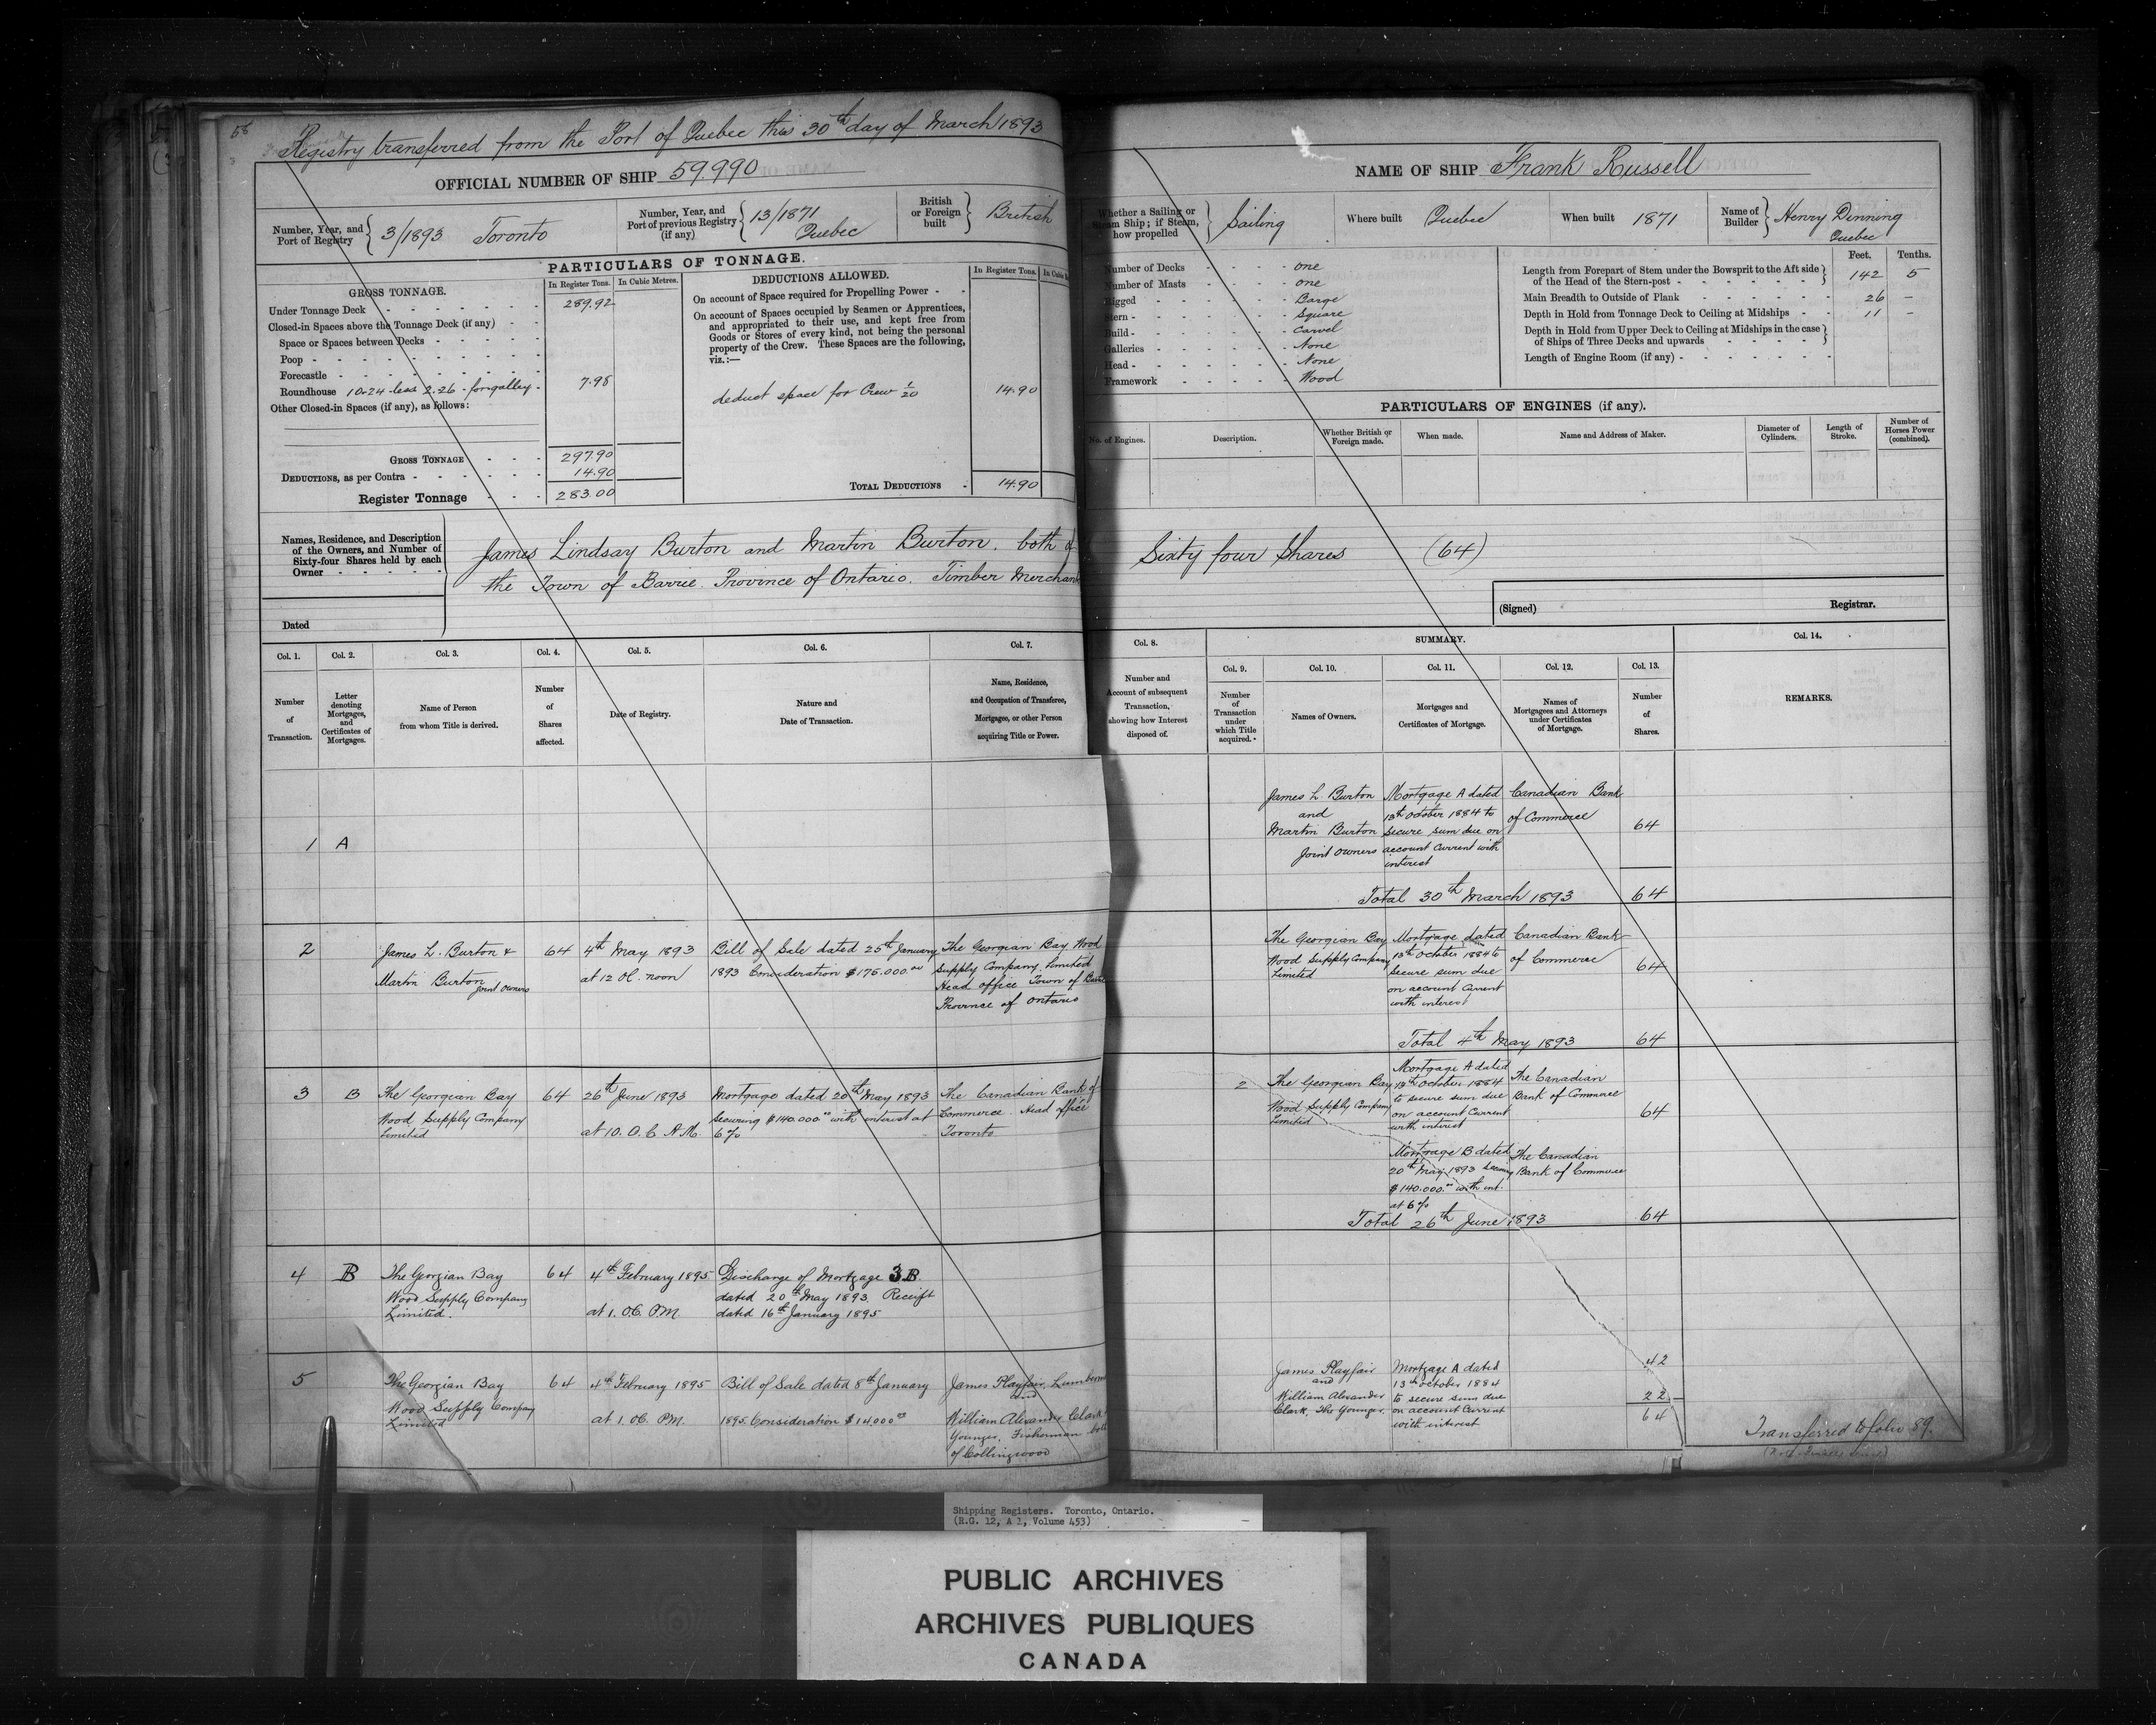 58
Registry transferred from the Port of Quebec this 30th day of March 1893
OFFICIAL NUMBER OF SHIP 59.990
Number, Year, and Port of Registry } 3/1893 Toronto
Number, Year, and Port of previous Registry (if any) { 13/1871 Quebec
British or Foreign built } British
PARTICULARS OF TONNAGE.
GROSS TONNAGE.
In Register Tons.
In Cubic Metres.
Under Tonnage Deck 289.92
Closed-in Spaces above the Tonnage Deck (if any)
Space or Spaces between Decks
Poop
Forecastle
Roundhouse 10.24 less 2.26 for galley 7.98
Other Closed-in Spaces (if any), as follows:
GROSS TONNAGE 297.90
DEDUCTIONS, as per Contra 14.90
Register Tonnage 283.00
DEDUCTIONS ALLOWED.
In Register Tons.
On account of Space required for Propelling Power
On account of Spaces occupied by Seamen or Apprentices,
and appropriated to their use, and kept free from
Goods or Stores of every kind, not being the personal
property of the Crew. These Spaces are the following,
viz.:—
deduct space for Crew 1/20 14.90
TOTAL DEDUCTIONS 14.90
Names, Residence, and Description
of the Owners, and Number of
Sixty-four Shares held by each
Owner
Dated
James Lindsay Burton and Martin Burton. both of
the Town of Barrie. Province of Ontario. Timber Merchants
NAME OF SHIP Frank Russell
Whether a Sailing or Steam Ship; if Steam, how propelled } Sailing
Where built Quebec
When built 1871
Name of Builder } Henry Dinning Quebec
Number of Decks one
Number of Masts one
Rigged Barge
Stern Square
Build Carvel
Galleries None
Head None
Framework Wood
Feet. Tenths.
Length from Forepart of Stem under the Bowsprit to the Aft side
of the Head of the Stern-post 142 5
Main Breadth to Outside of Plank 26 –
Depth in Hold from Tonnage Deck to Ceiling at Midships 11 –
Depth in Hold from Upper Deck to Ceiling at Midships in the case
of Ships of Three Decks and upwards
Length of Engine Room (if any)
PARTICULARS OF ENGINES (if any).
No. of Engines.
Description.
Whether British or Foreign made.
When made.
Name and Address of Maker.
Diameter of Cylinders.
Length of Stroke.
Number of Horses Power (combined).
Sixty four Shares (64)
(Signed) Registrar.
Col. 1. Number of Transaction.
Col. 2. Letter denoting Mortgages, and Certificates of Mortgages.
Col. 3. Name of Person from whom Title is derived.
Col. 4. Number of Shares affected.
Col. 5. Date of Registry.
Col. 6. Nature and Date of Transaction.
Col. 7. Name, Residence, and Occupation of Transferee, Mortgagee, or other Person acquiring Title or Power.
Col. 8. Number and Account of subsequent Transaction, showing how Interest disposed of.
SUMMARY.
Col. 9. Number of Transaction under which Title acquired.
Col. 10. Names of Owners.
Col. 11. Mortgages and Certificates of Mortgage.
Col. 12. Names of Mortgagees and Attorneys under Certificates of Mortgage.
Col. 13. Number of Shares.
Col. 14. REMARKS.
1 A
James L. Burton
and
Martin Burton
Joint Owners
Mortgage A dated
13th October 1884 to
secure sum due on
account Current with
interest
Canadian Bank
of Commerce
64
Total 30th March 1893 64
2
James L. Burton &
Martin Burton
Joint Owners
64
4th May 1893
at 12 Oc. noon
Bill of Sale dated 25th January
1893 Consideration $175.000.00
The Georgian Bay Wood
Supply Company. Limited
Head office Town of Barrie
Province of Ontario
The Georgian Bay
Wood Supply Company
Limited
Mortgage dated
13th October 1884 to
Secure sum due
on account Current
with interest
Canadian Bank
of Commerce
64
Total 4th May 1893 64
3 B
The Georgian Bay
Wood Supply Company
Limited
64
26th June 1893
at 10. O. C. A.M.
Mortgage dated 20th May 1893
securing $140.000.00 with interest at
6%
The Canadian Bank of
Commerce. Head office
Toronto
2
The Georgian Bay
Wood Supply Company
Limited
Mortgage A dated
13th October 1884
to secure sum due
on account Current
with interest
The Canadian
Bank of Commerce
64
Mortgage B dated
20th May 1893 securing
$140.000.00 with int.
at 6%
The Canadian
Bank of Commerce
Total 26th June 1893 64
4 B
The Georgian Bay
Wood Supply Company
Limited.
64
4th February 1895
at 1. OC. P.M.
Discharge of Mortgage 3B
dated 20th May 1893. Receipt
dated 16th January 1895
5
The Georgian Bay
Wood Supply Company
Limited
64
4th February 1895
at 1. OC. P.M.
Bill of Sale dated 8th January
1895. Consideration $14,000.00
James Playfair, Lumberman
and
William Alexander Clark
Younger, Fisherman both
of Collingwood
James Playfair
and
William Alexander
Clark, The Younger.
Mortgage A dated
13th October 1884
to secure sum due
on account Current
with interest
42
22
64
Transferred to folio 89.
Shipping Registers. Toronto, Ontario.
(R.G. 12, A 1, Volume 453)
PUBLIC ARCHIVES
ARCHIVES PUBLIQUES
CANADA